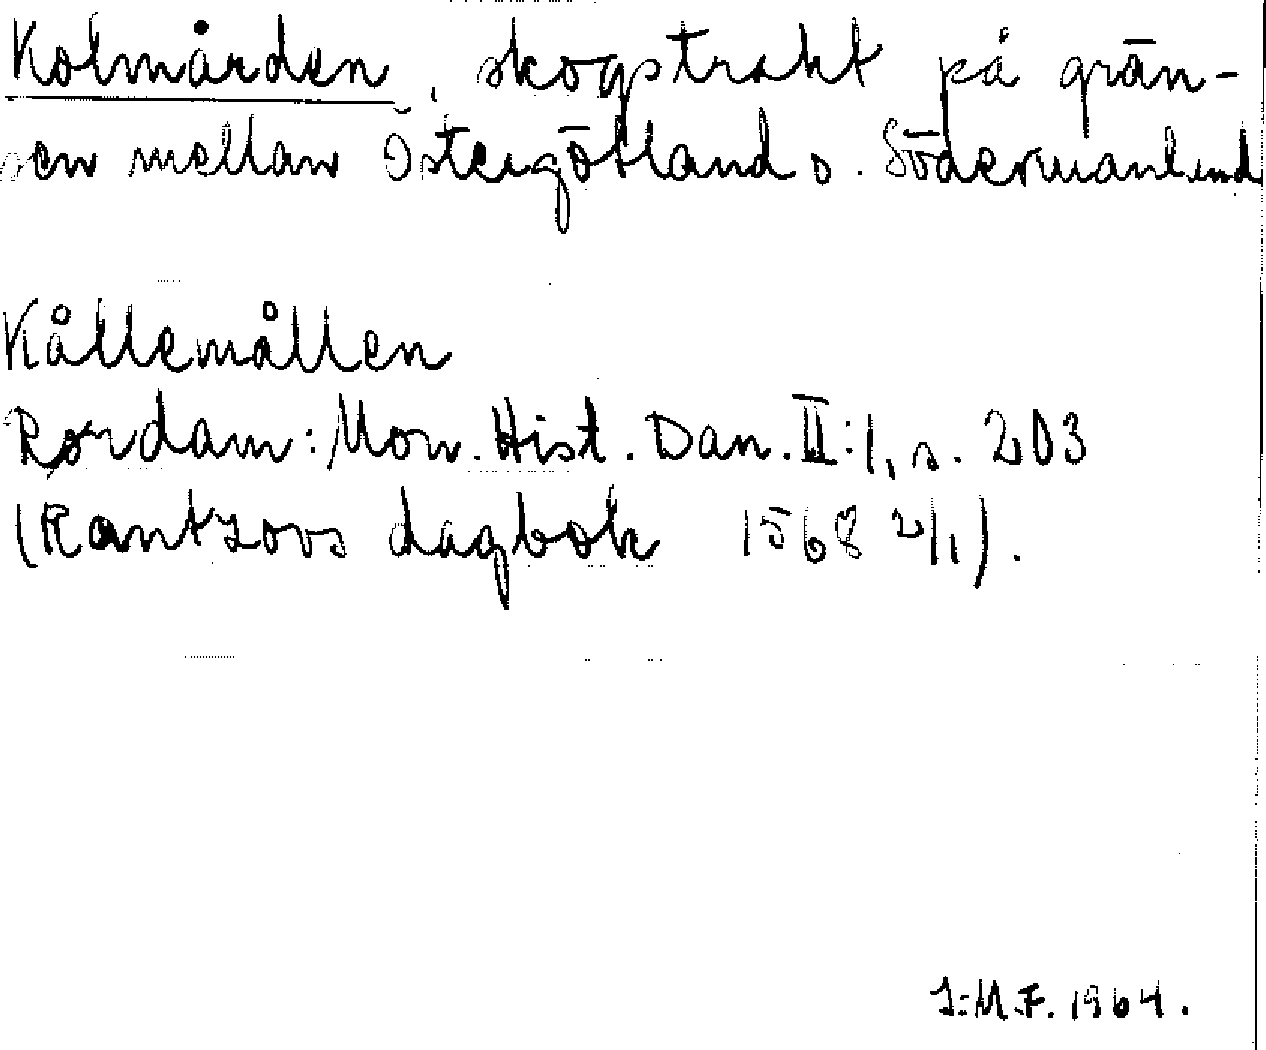 Kolmården, skogstrakt på grän-
sen mellan Östergötland o. Södermanland
Kållemållen
Rørdam: Mon. Hist. Dan. II:1, s. 203
(Rantzovs dagbok 1568 2/1).
J:M.F. 1964.